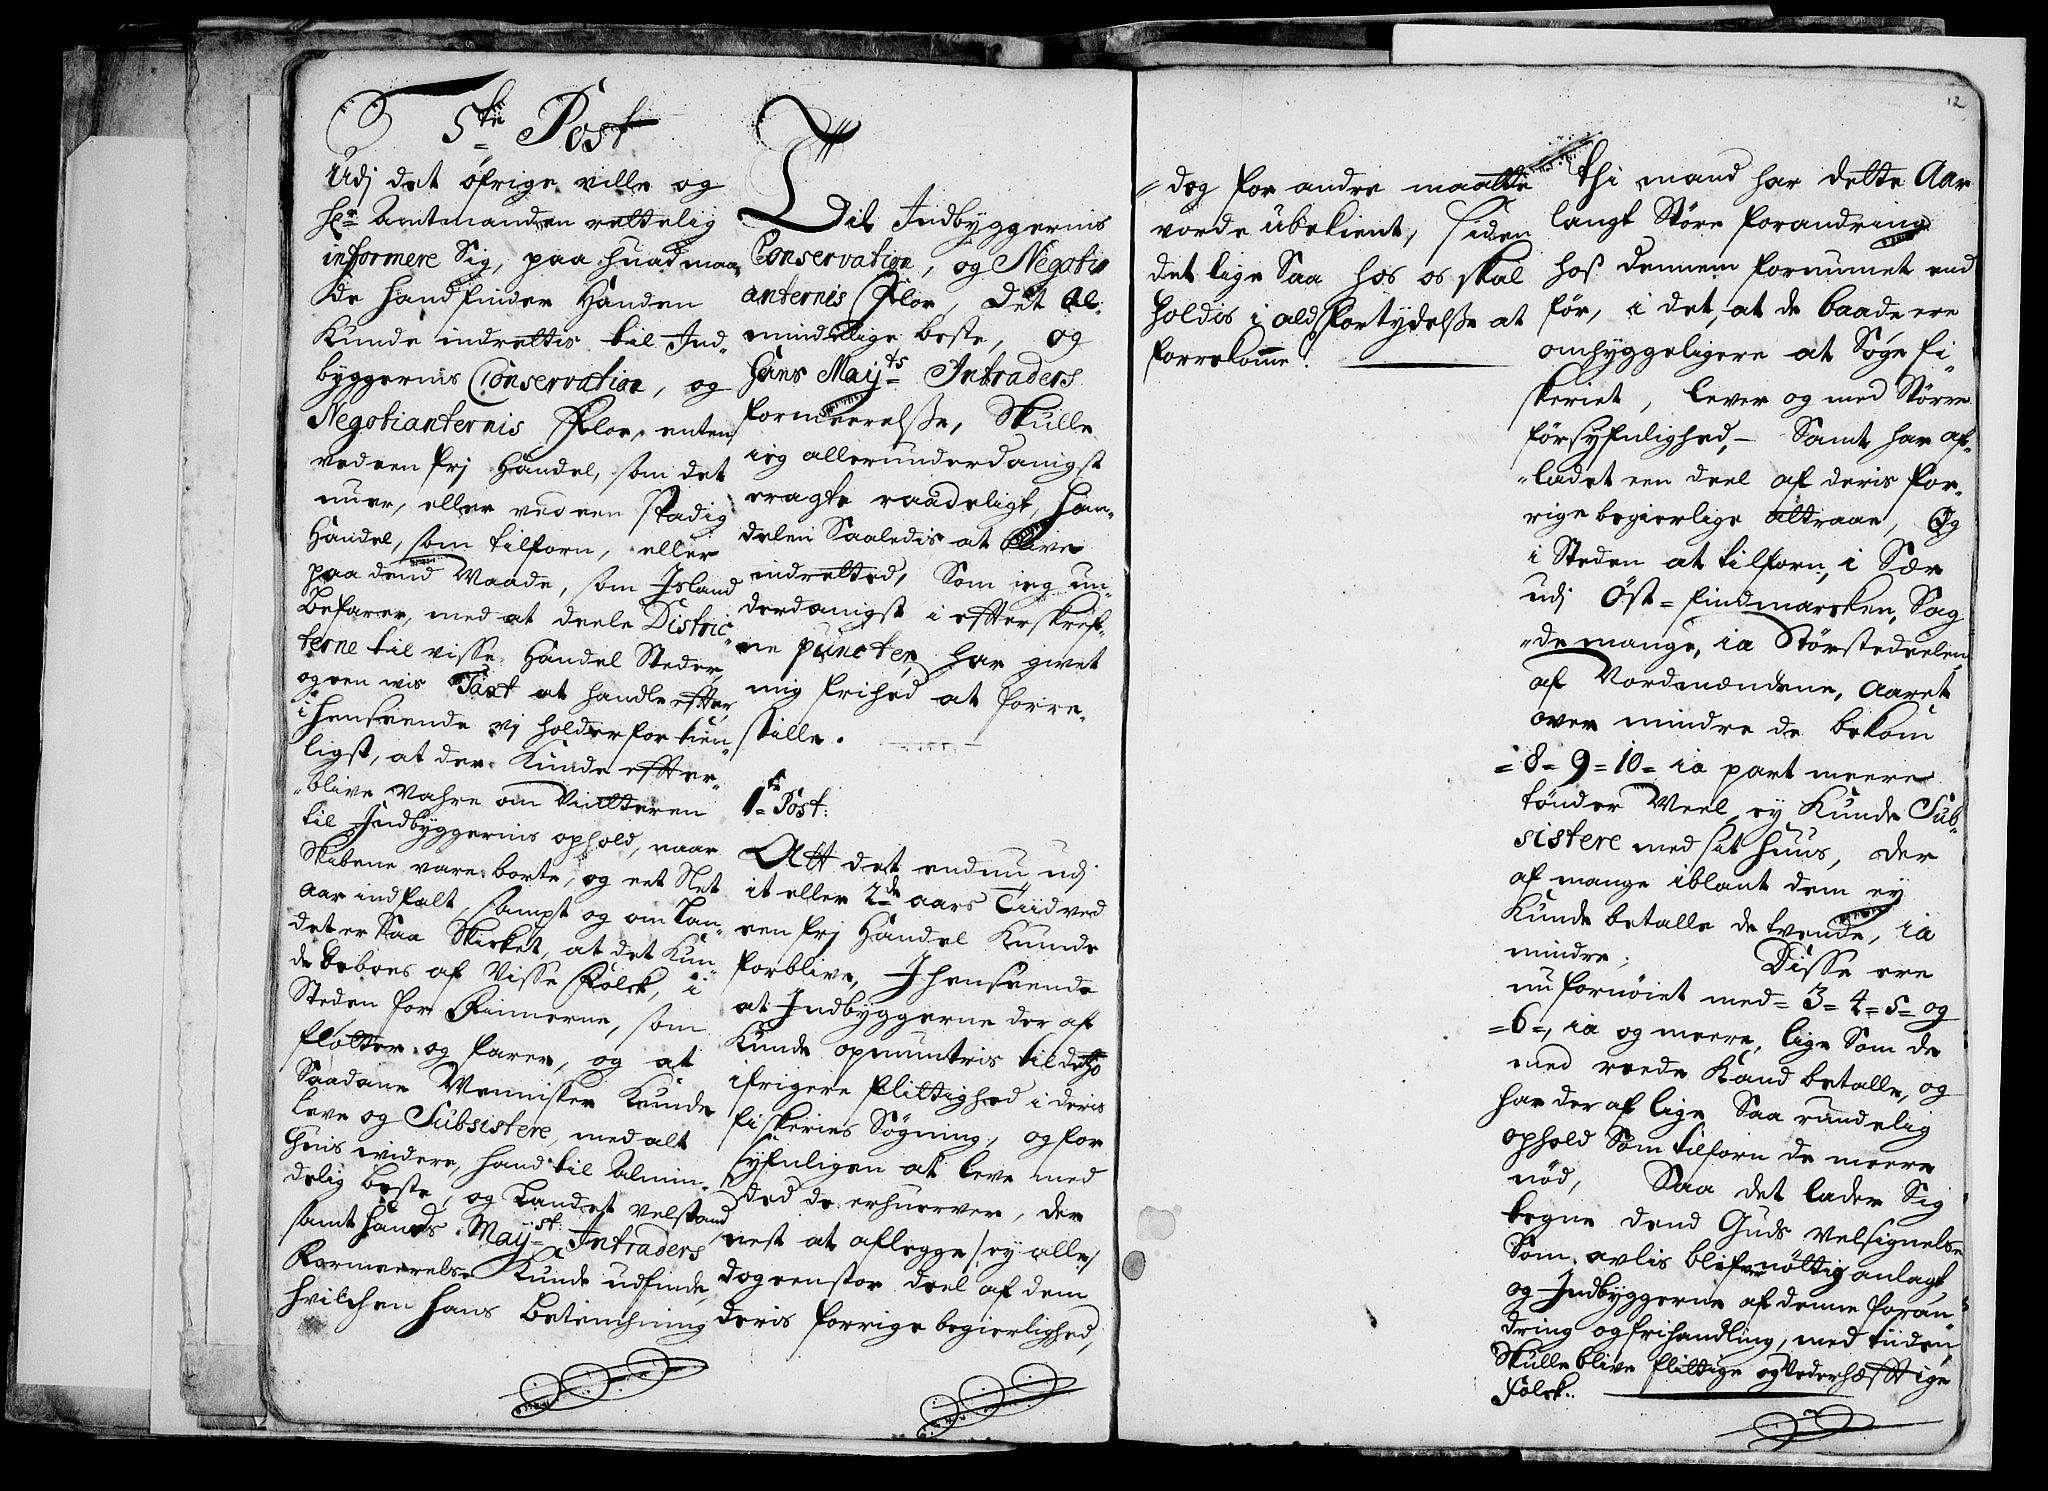 5te Post
Udj det öfrige ville og
Hr Amtmanden rettelig
informere Sig, paa huad maa„
de hand finder Handen
Kunde indrettis til Ind„
byggernis Conservation, og
Negotianternis Flor, enten
ved een frj Handel, som det
nu er, eller ved een stadig
Handel, som tilforn, eller
paa dend Maade, som Island
Befarer, med at deele Distric„
terne til visse Handel Steder,
og een vis Taxt at handle efter,
i henseende vj holder for tien„
ligst, at der Kunde efter„
„blive Vahre om Vinteren
til Indbyggernis ophold, naar
Skibene vare borte, og eet Slet
Aar indfalt, sampt og om Lan„
det er Saa Skicket, at det Kun„
de beboes af Visse Folck, i
Steden for Finnerne, som
flötter og farer, og at
Saadane Mennisker Kunde
leve og Subsistere, med alt
huis videre, hand til Almin„
delig beste, og Landet velstand
samt Hands Mayst: Intraders
Formeerelse Kunde udfinde,
hvilchen hans Betenchning
Til Indbyggernis
Conservation, og Negoti„
anternis Flor, det al„
mindelige beste, og
Hans Mayts Intraders
formeerelsse, Skulle
ieg allerunderdanigst
eragte raadeligt, Han„
delen Saaledis at blive
indretted, Som ieg un„
derdanigst i effterskref„
ne puncter, har givet
mig frihed at forre„
stille.
1te Post:
Att det endnu udj
it eller 2de aars Tiid ved
een frj Handel Kunde
forblive, J henseende
at Indbyggerne der af
Kunde opmuntris til desto
ifrigere flittighed i deris
fiskeries Søgning, og for
syfnligen at leve med
ded de erhuerver, der
nest at aflegge /: ey alle /
dog een stor deel af dem
deris forrige begierlighed,
12
„dog for andre maatte
vorde ubekient, siden
det lige Saa hos os skal
holdis i ald fortydelsse at
forrekomme.
thi mand har dette Aar
langt Större forandring
hoß dennem fornummet end
för, i det, at de baade ere
omhyggeligere at Søge fi„
skeriet, lever og med Större
försyfnlighed, Samt har af„
„ladet een deel af deris for„
rige begierlige Attraae, Og
i Steden at tilforn, i Sær
udj Öst-findmarcken, Sag„
„de mange, ia Störstedeelen
af Nordmændene, Aaret
over mindre de bekom
=8=9=10= ia part meere
tönder Meel, ey Kunde Sub„
sistere med sit Huus, der
af mange iblant dem ey
Kunde betalle de tvende, ia
mindre; Disse ere
nu fornöiet med= 3=4=5= og
=6=, ia og meere, lige Som de
med reede Kand betalle, og
har der af lige Saa rundelig
ophold Som tilforn de meere
nöd, Saa det lader Sig
tegne dend Guds Velsignelse
Som avlis blifver nöttig anlagt
og Indbyggerne af denne foran„
dring og frihandling, med tiiden
Skulle blive flittige og Vederhæfftige
Folck.